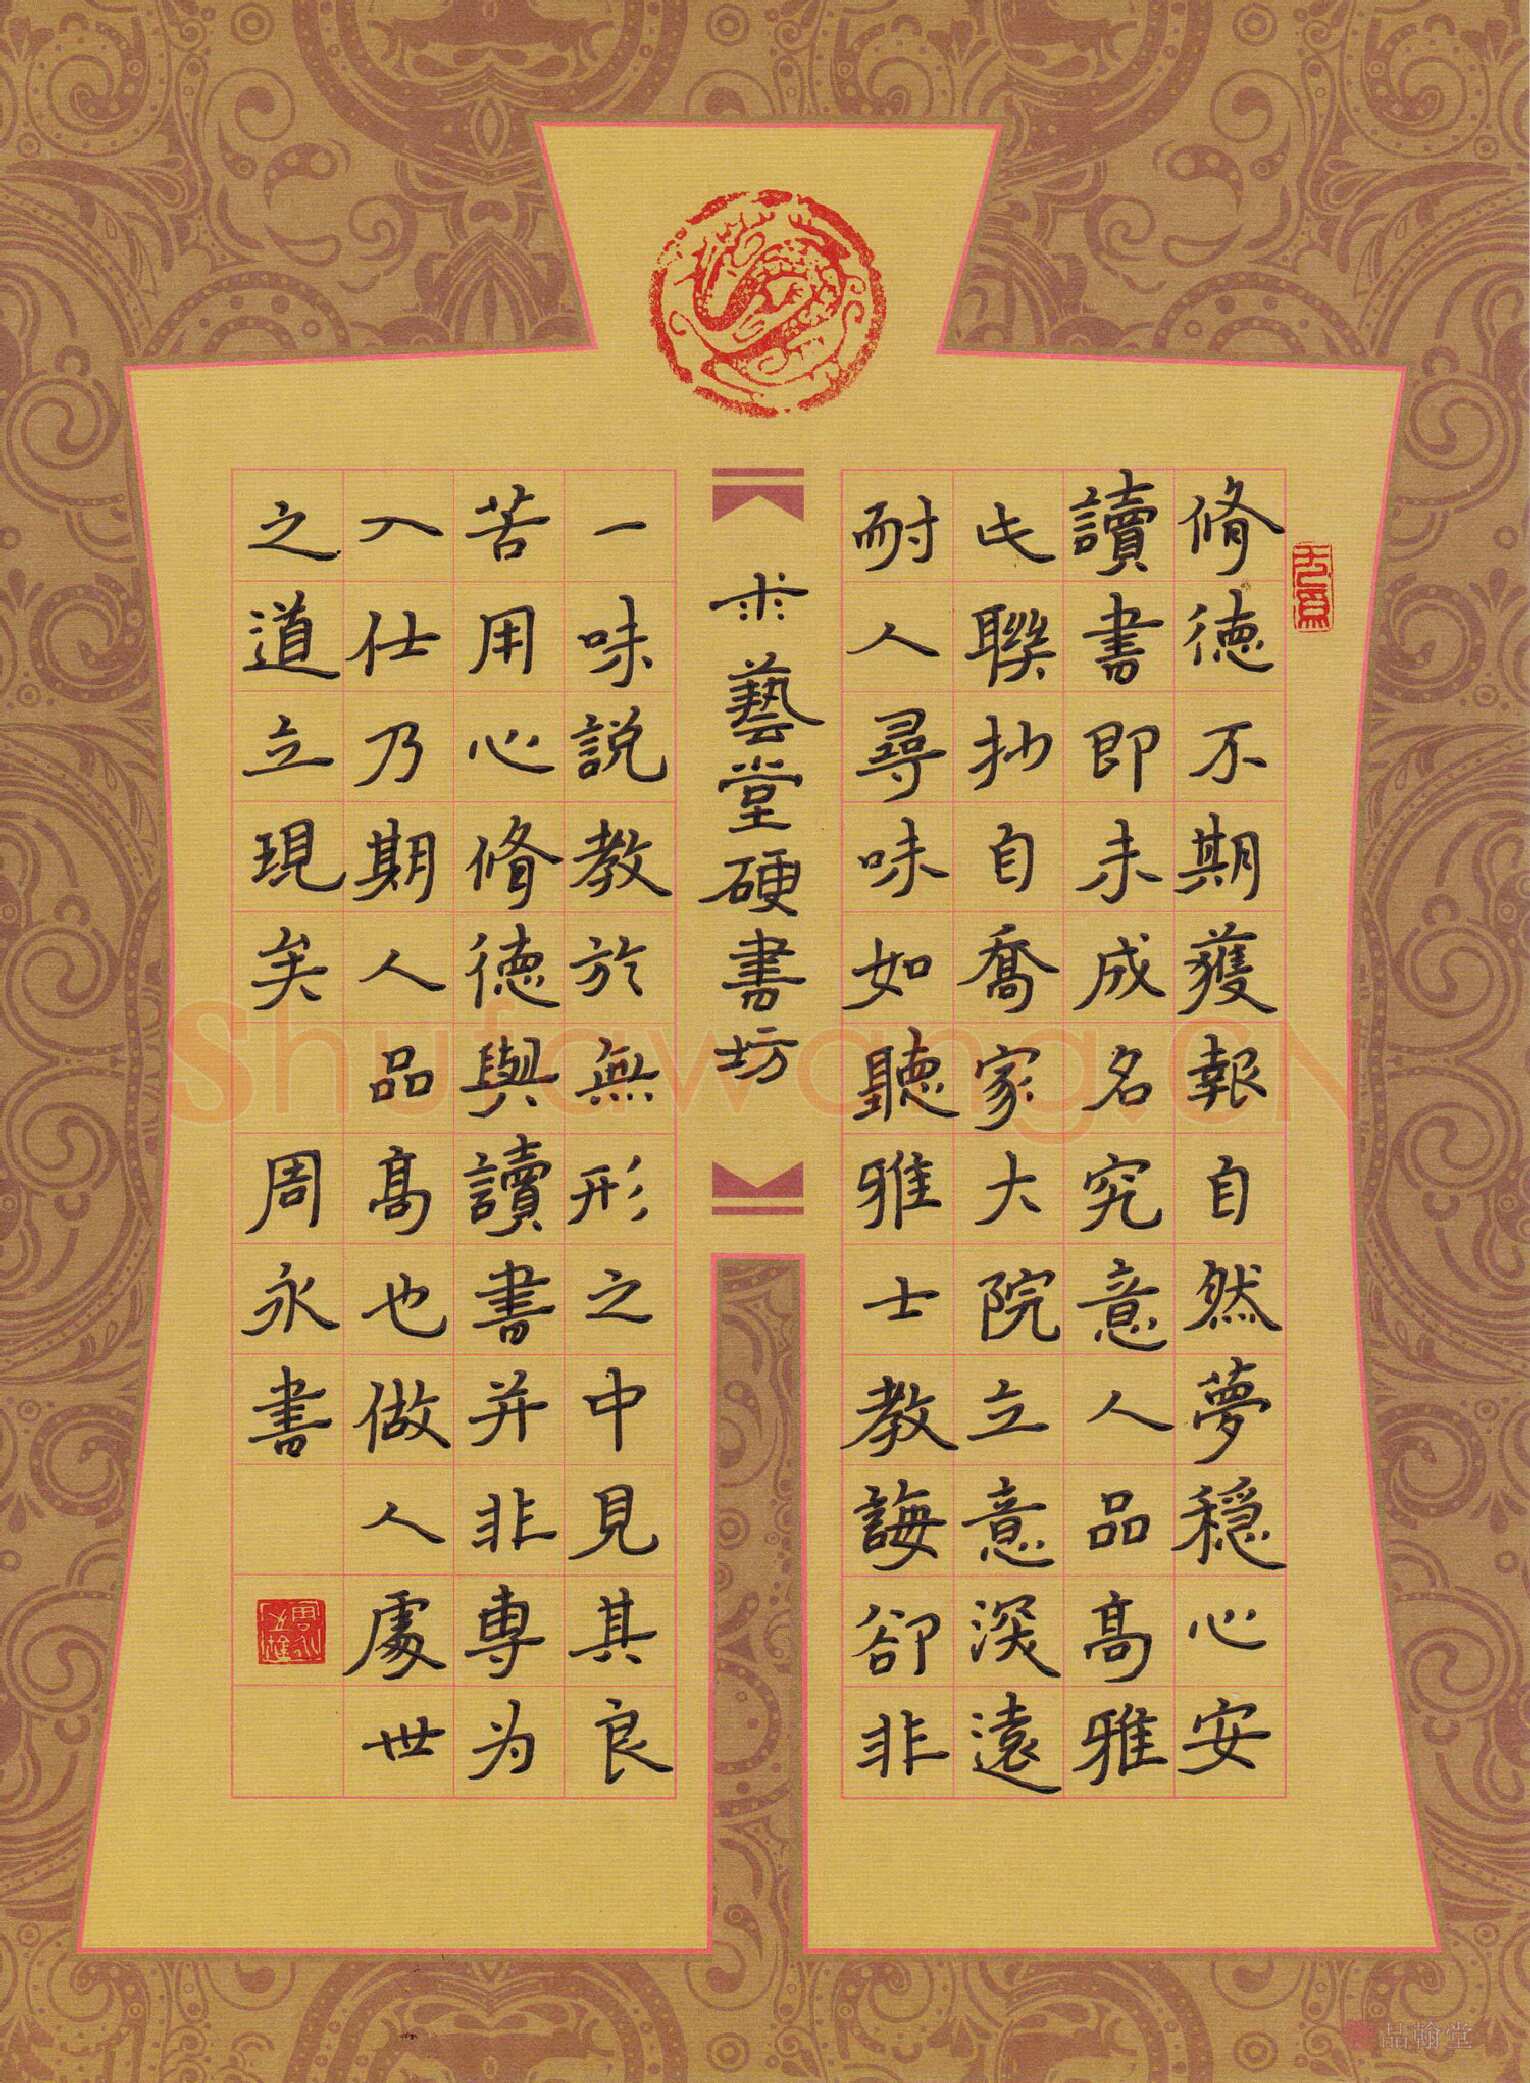 脩德不期獲報自然夢穩心安
讀書即未成名究意人品高雅
氏聯抄自喬家大院立意深遠
耐人尋味如聽雅士教誨卻非
藝堂硬書坊
一味説教於無形之中見其良
苦用心脩德與讀書并非專为
入仕乃期人品高也做人處世
之道立現矣 周永書
Shufawang.CN
品翰堂